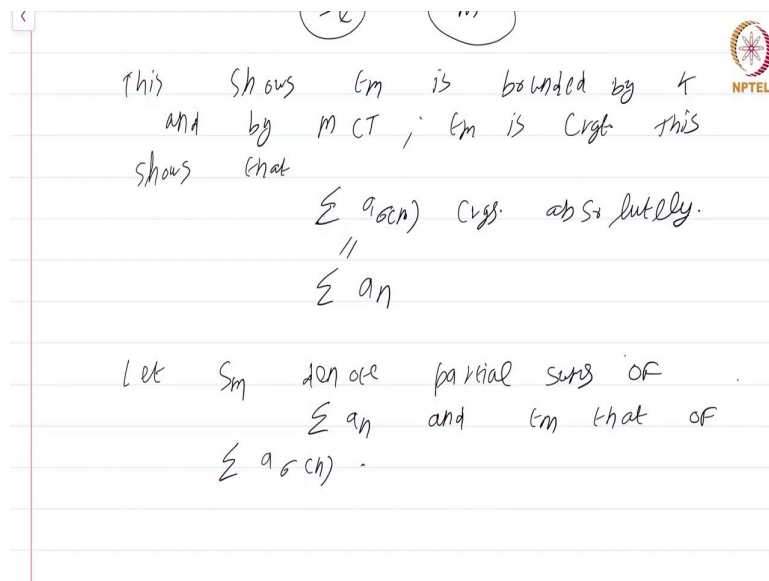 This shows tm is bounded by K
and by MCT, tm is Crgt. This
shows that
Σ a_σ(n) Crgs. absolutely.
||
Σ an
Let Sm denote partial sums of
Σ an and tm that of
Σ a_σ(n).
NPTEL